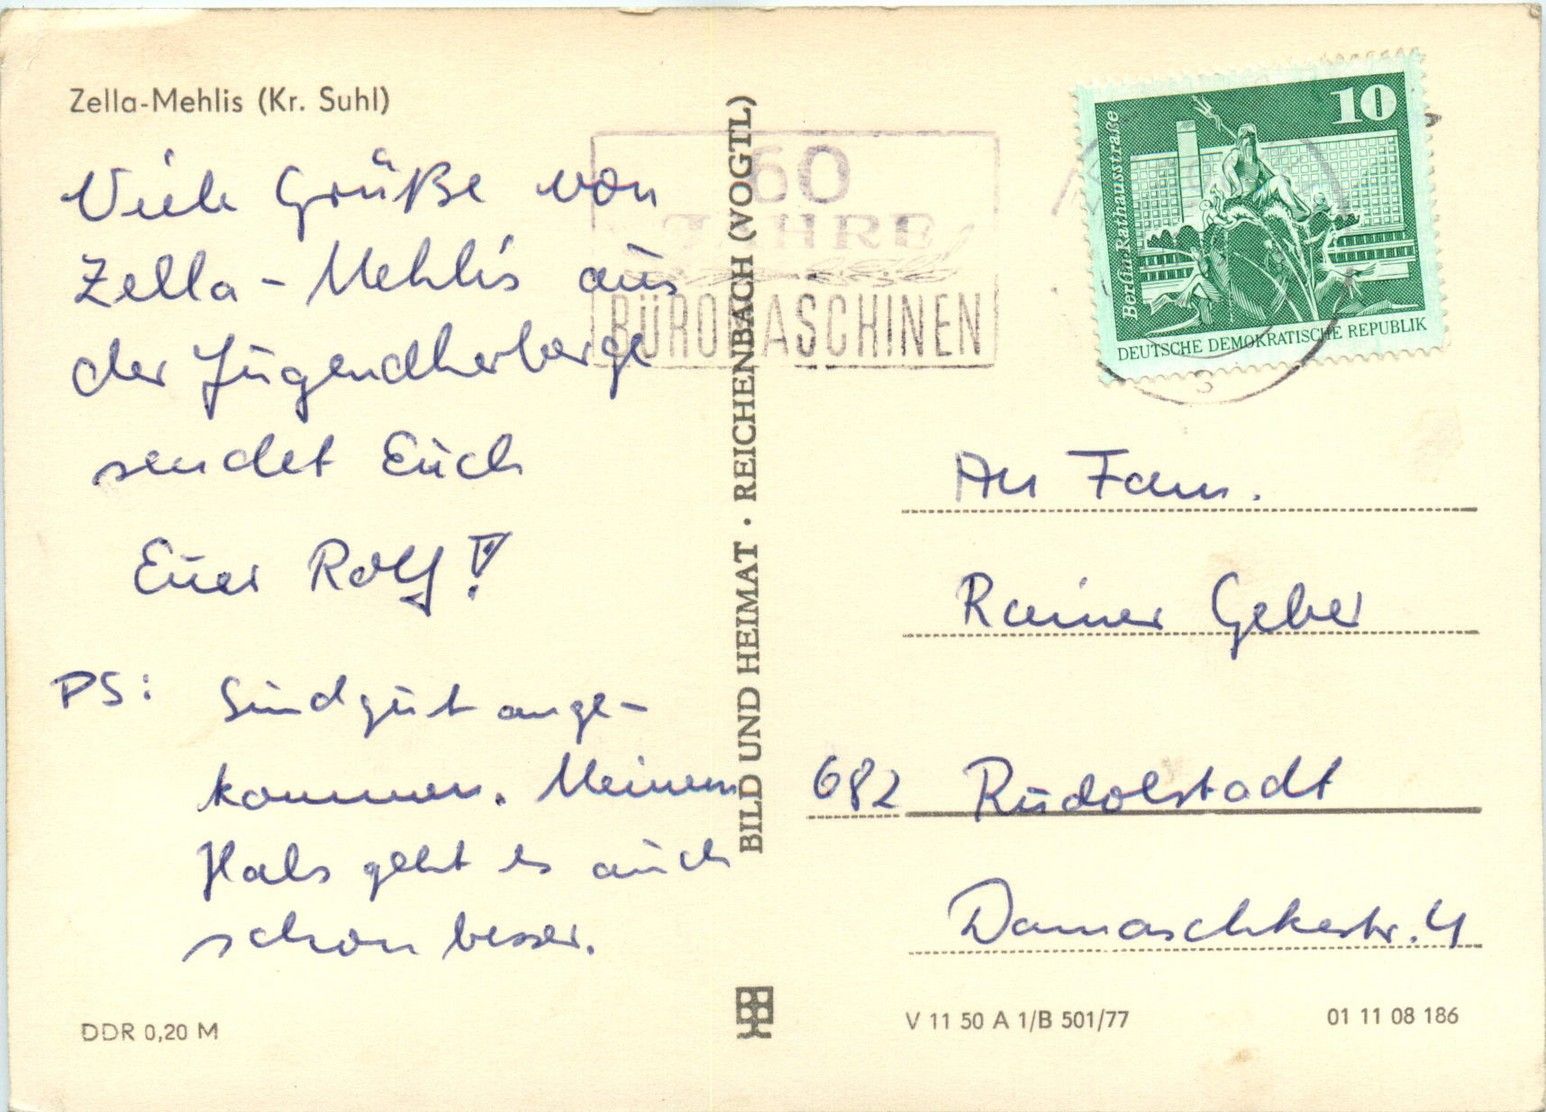 Zella-Mehlis (Kr. Suhl)
Viele Grüße von
Zella-Mehlis aus
der Jugendherberge
sendet Euch
Euer Rolf!
PS: Sind gut ange-
kommen. Meinem
Hals geht es auch
schon besser.
DDR 0,20 M
BILD UND HEIMAT · REICHENBACH (VOGTL)
60
JAHRE
BÜROMASCHINEN
10
Berlin, Rathausstraße
DEUTSCHE DEMOKRATISCHE REPUBLIK
An Fam.
Rainer Geber
682 Rudolstadt
Damaschkestr. 4
V 11 50 A 1/B 501/77
01 11 08 186